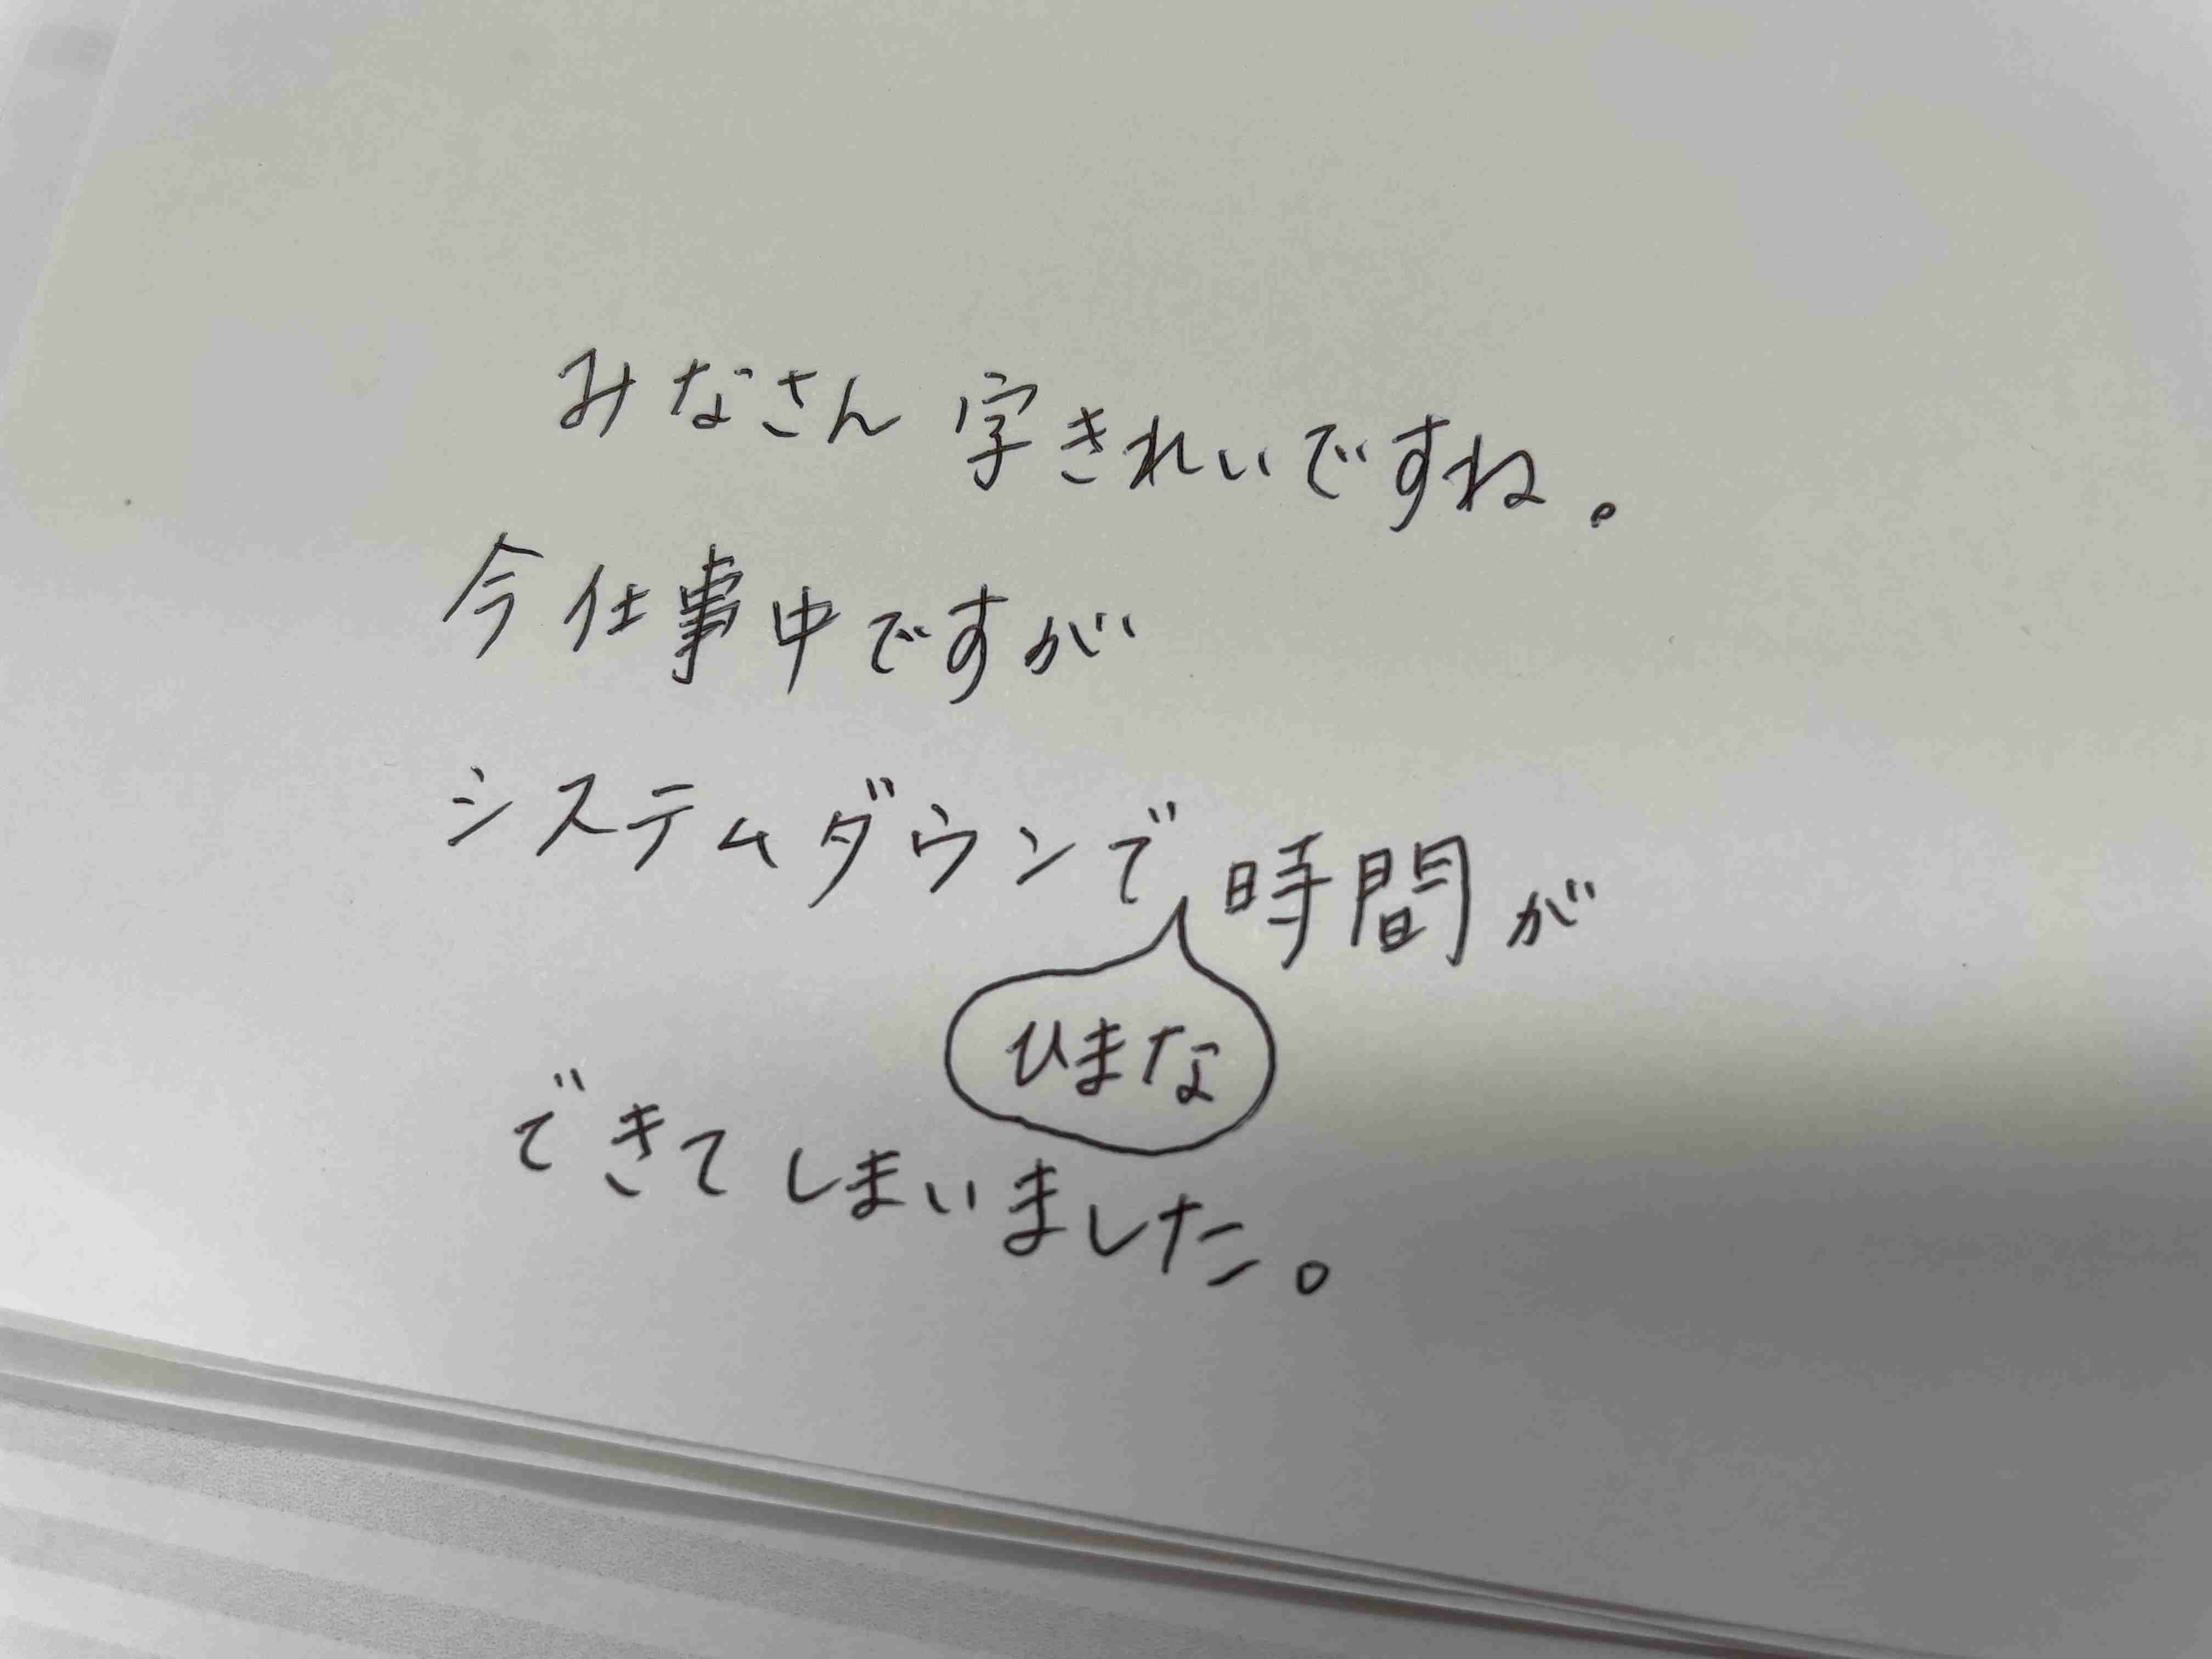 みなさん 字きれいですね。
今仕事中ですが
システムダウンで時間が
ひまな
できてしまいました。